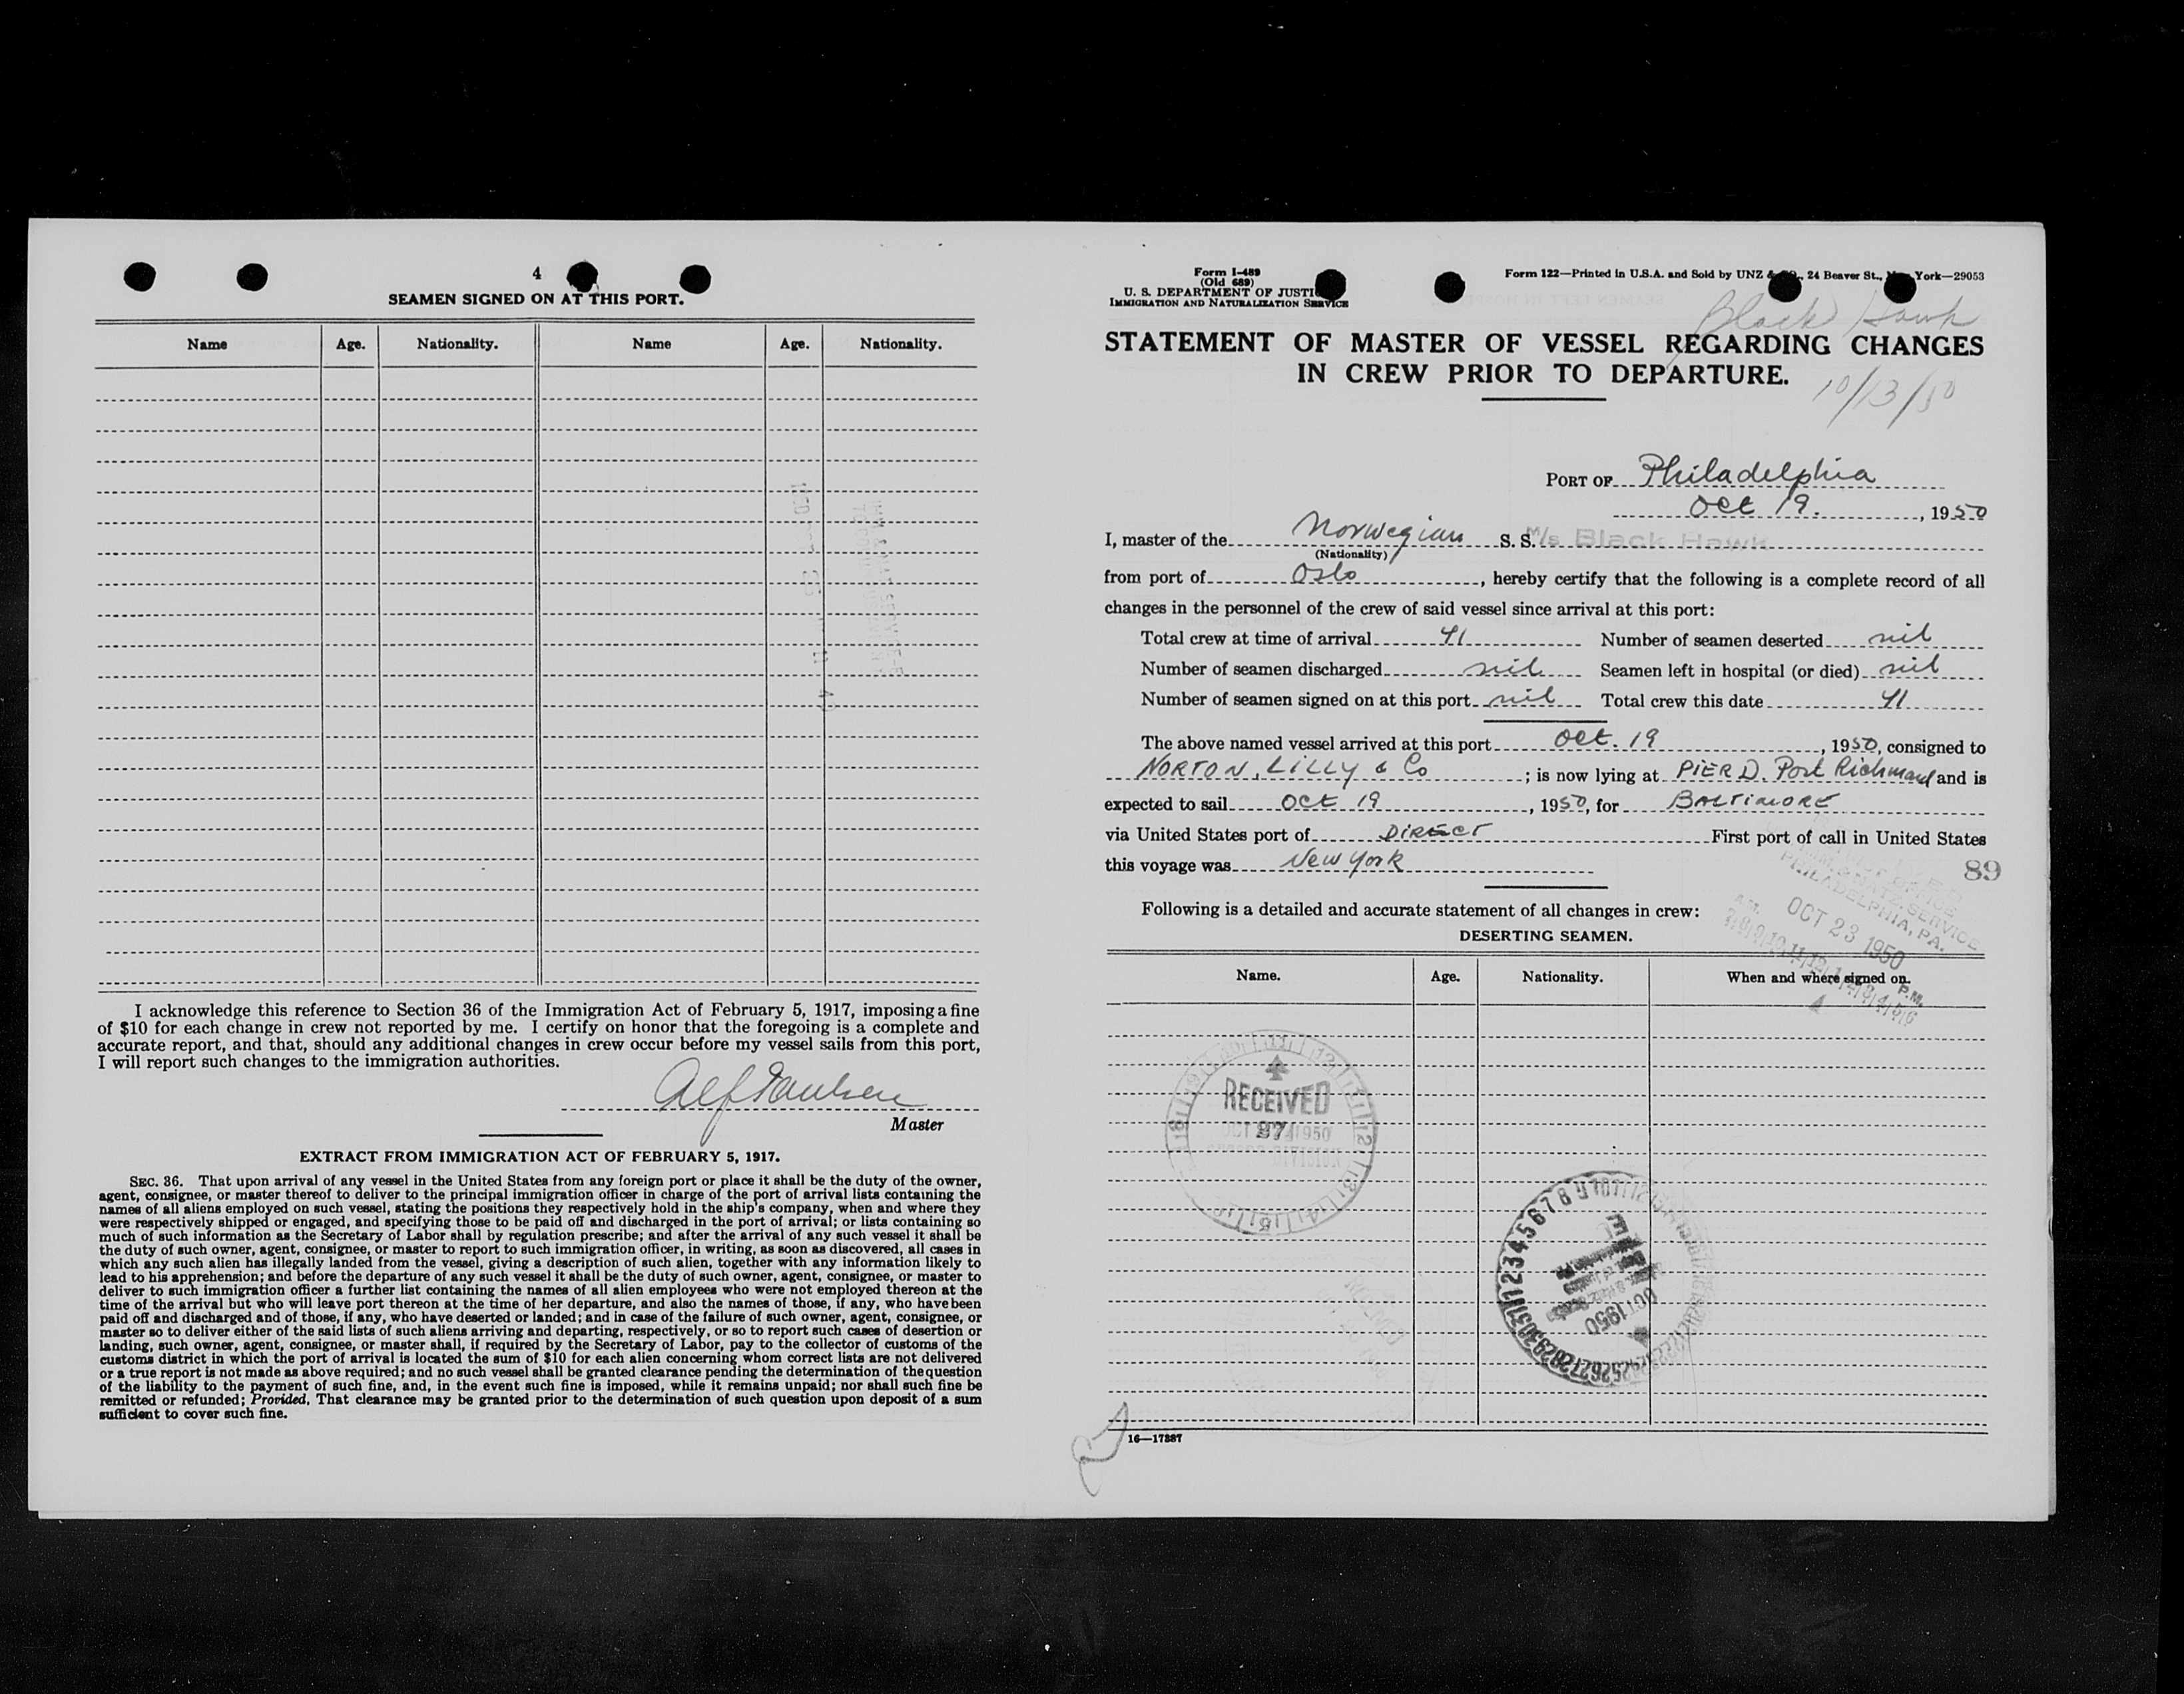 4
SEAMEN SIGNED ON AT THIS PORT.
Name Age. Nationality. Name Age. Nationality.
I acknowledge this reference to Section 36 of the Immigration Act of February 5, 1917, imposing a fine
of $10 for each change in crew not reported by me. I certify on honor that the foregoing is a complete and
accurate report, and that, should any additional changes in crew occur before my vessel sails from this port,
I will report such changes to the immigration authorities.
Alf Paulsen
Master
EXTRACT FROM IMMIGRATION ACT OF FEBRUARY 5, 1917.
SEC. 36. That upon arrival of any vessel in the United States from any foreign port or place it shall be the duty of the owner,
agent, consignee, or master thereof to deliver to the principal immigration officer in charge of the port of arrival lists containing the
names of all aliens employed on such vessel, stating the positions they respectively hold in the ship's company, when and where they
were respectively shipped or engaged, and specifying those to be paid off and discharged in the port of arrival; or lists containing so
much of such information as the Secretary of Labor shall by regulation prescribe; and after the arrival of any such vessel it shall be
the duty of such owner, agent, consignee, or master to report to such immigration officer, in writing, as soon as discovered, all cases in
which any such alien has illegally landed from the vessel, giving a description of such alien, together with any information likely to
lead to his apprehension; and before the departure of any such vessel it shall be the duty of such owner, agent, consignee, or master to
deliver to such immigration officer a further list containing the names of all alien employees who were not employed thereon at the
time of the arrival but who will leave port thereon at the time of her departure, and also the names of those, if any, who have been
paid off and discharged and of those, if any, who have deserted or landed; and in case of the failure of such owner, agent, consignee, or
master so to deliver either of the said lists of such aliens arriving and departing, respectively, or so to report such cases of desertion or
landing, such owner, agent, consignee, or master shall, if required by the Secretary of Labor, pay to the collector of customs of the
customs district in which the port of arrival is located the sum of $10 for each alien concerning whom correct lists are not delivered
or a true report is not made as above required; and no such vessel shall be granted clearance pending the determination of the question
of the liability to the payment of such fine, and, in the event such fine is imposed, while it remains unpaid; nor shall such fine be
remitted or refunded; Provided, That clearance may be granted prior to the determination of such question upon deposit of a sum
sufficient to cover such fine.
Form I-489
(Old 689)
U. S. DEPARTMENT OF JUSTICE
IMMIGRATION AND NATURALIZATION SERVICE
Form 122—Printed in U.S.A. and Sold by UNZ & CO., 24 Beaver St., New York—29053
Black Hawk
STATEMENT OF MASTER OF VESSEL REGARDING CHANGES
IN CREW PRIOR TO DEPARTURE.
10/13/50
PORT OF Philadelphia
Oct 19., 1950
I, master of the Norwegian S. S. M/s Black Hawk
(Nationality)
from port of Oslo, hereby certify that the following is a complete record of all
changes in the personnel of the crew of said vessel since arrival at this port:
Total crew at time of arrival 41 Number of seamen deserted nil
Number of seamen discharged nil Seamen left in hospital (or died) nil
Number of seamen signed on at this port nil Total crew this date 41
The above named vessel arrived at this port Oct. 19, 1950, consigned to
NORTON, LILLY & Co; is now lying at PIER D. Port Richmond and is
expected to sail OCT 19, 1950, for BALTIMORE
via United States port of DIRECT First port of call in United States
this voyage was New York
89
Following is a detailed and accurate statement of all changes in crew:
PHILADELPHIA, PA.
OCT 23 1950
DESERTING SEAMEN.
Name. Age. Nationality. When and where signed on.
P.M.
RECEIVED
87
OCT 1950
16—17887